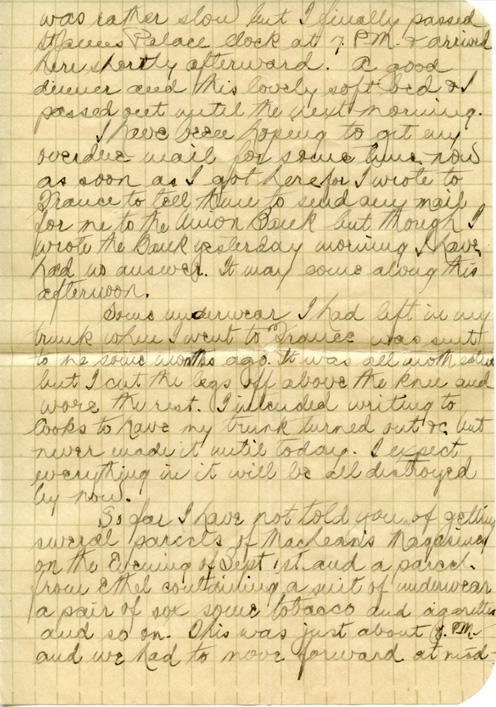 was rather slow but I finally passed
St James Palace clock at 7. P.M. & arrived
here shortly afterward. A good
dinner and this lovely soft bed & I
passed out until the next morning.
I have been hoping to get my
overdue mail for some time now
as soon as I got here for I wrote to
France to tell them to send any mail
for me to the Union Bank but though I
wrote the Bank yesterday morning I have
had no answer. It may come along this
afternoon.
Some underwear I had left in my
trunk when I went to France was sent
to me some months ago. It was all moth eaten
but I cut the legs off above the knee and
wore the rest. I intended writing to
Cooks to have my trunk turned out &c. but
never made it until today. I expect
everything in it will be all destroyed
by now.
So far I have not told you of getting
several parcels of MacLean's Magazines
on the Evening of Sept 1st. and a parcel
from Ethel containing a suit of underwear
a pair of sox some tobacco and cigarettes
and so on. This was just about P.M.
and we had to move forward at mid-